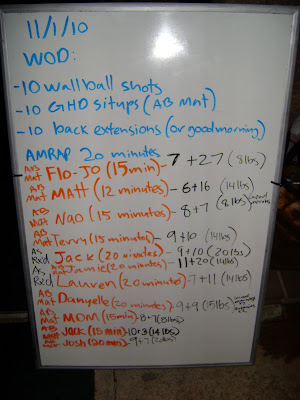 11/1/10
WOD:
-10 wallball shots
-10 GHD situps (AB Mat)
-10 back extensions (or goodmorning)
AMRAP 20 minutes
AB Mat Flo-Jo (15min)- 7+27 (8lbs)
AB Mat Matt (12 minutes)- 6+16 (14lbs)
AB Mat Nao (15 minutes)- 8+7 (8lbs)
AB Mat Terry (15 minutes)- 9+10 (14lbs)
As Rx'd Jack (20 minutes) - 9+10 (20lbs)
Jamie (20 minutes) - 11+20 (14lbs)
Rx'd Lauren (20 minutes) -7+11 (14lbs)
AB Mat Danyelle (20 minutes) - 9+9 (15lbs)
AB Mat MOM (15min)- 8+7 (8lbs)
AB Mat Jack (15min) 10+3 (14lbs)
Josh (20min) 9+7 (20lbs)